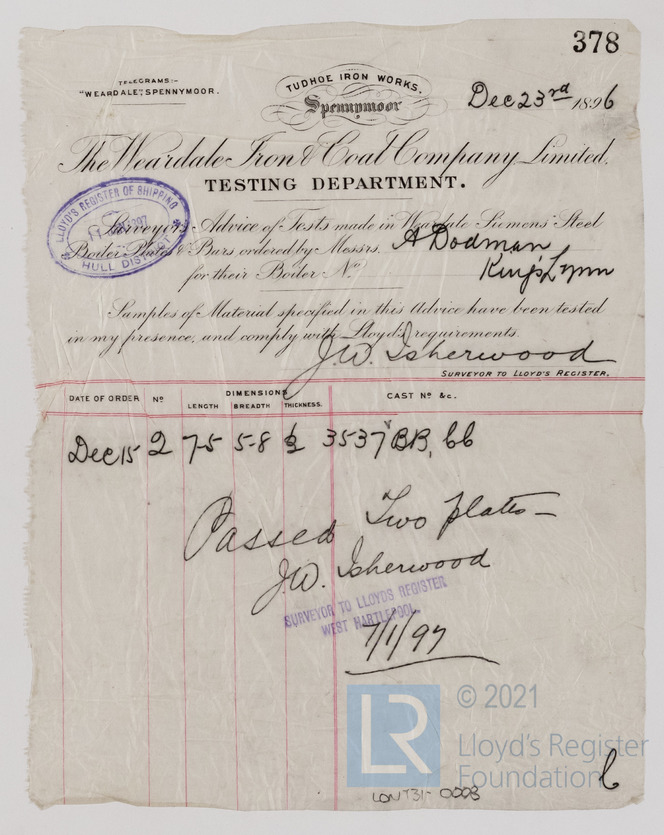 378
TELEGRAMS:-
"WEARDALE", SPENNYMOOR.
TUDHOE IRON WORKS.
Spennymoor
Dec 23rd 1896
The Weardale Iron & Coal Company Limited,
TESTING DEPARTMENT.
LLOYD'S REGISTER OF SHIPPING
HULL DISTRICT
Surveyor's Advice of Tests made in Weardale Siemens' Steel
Boiler Plates & Bars ordered by Messrs. A Dodman
King's Lynn
for their Boiler No
Samples of Material specified in this Advice have been tested
in my presence, and comply with Lloyd's requirements.
J.W. Isherwood
SURVEYOR TO LLOYD'S REGISTER.
DATE OF ORDER No DIMENSIONS CAST No &c.
LENGTH BREADTH THICKNESS.
Dec 15 2 7-5 5-8 3537 BB, bb
Passed Two plates
J.W. Isherwood
SURVEYOR TO LLOYDS REGISTER
WEST HARTLEPOOL.
7/1/97
LR © 2021
Lloyd's Register
Foundation
LONT31-0008